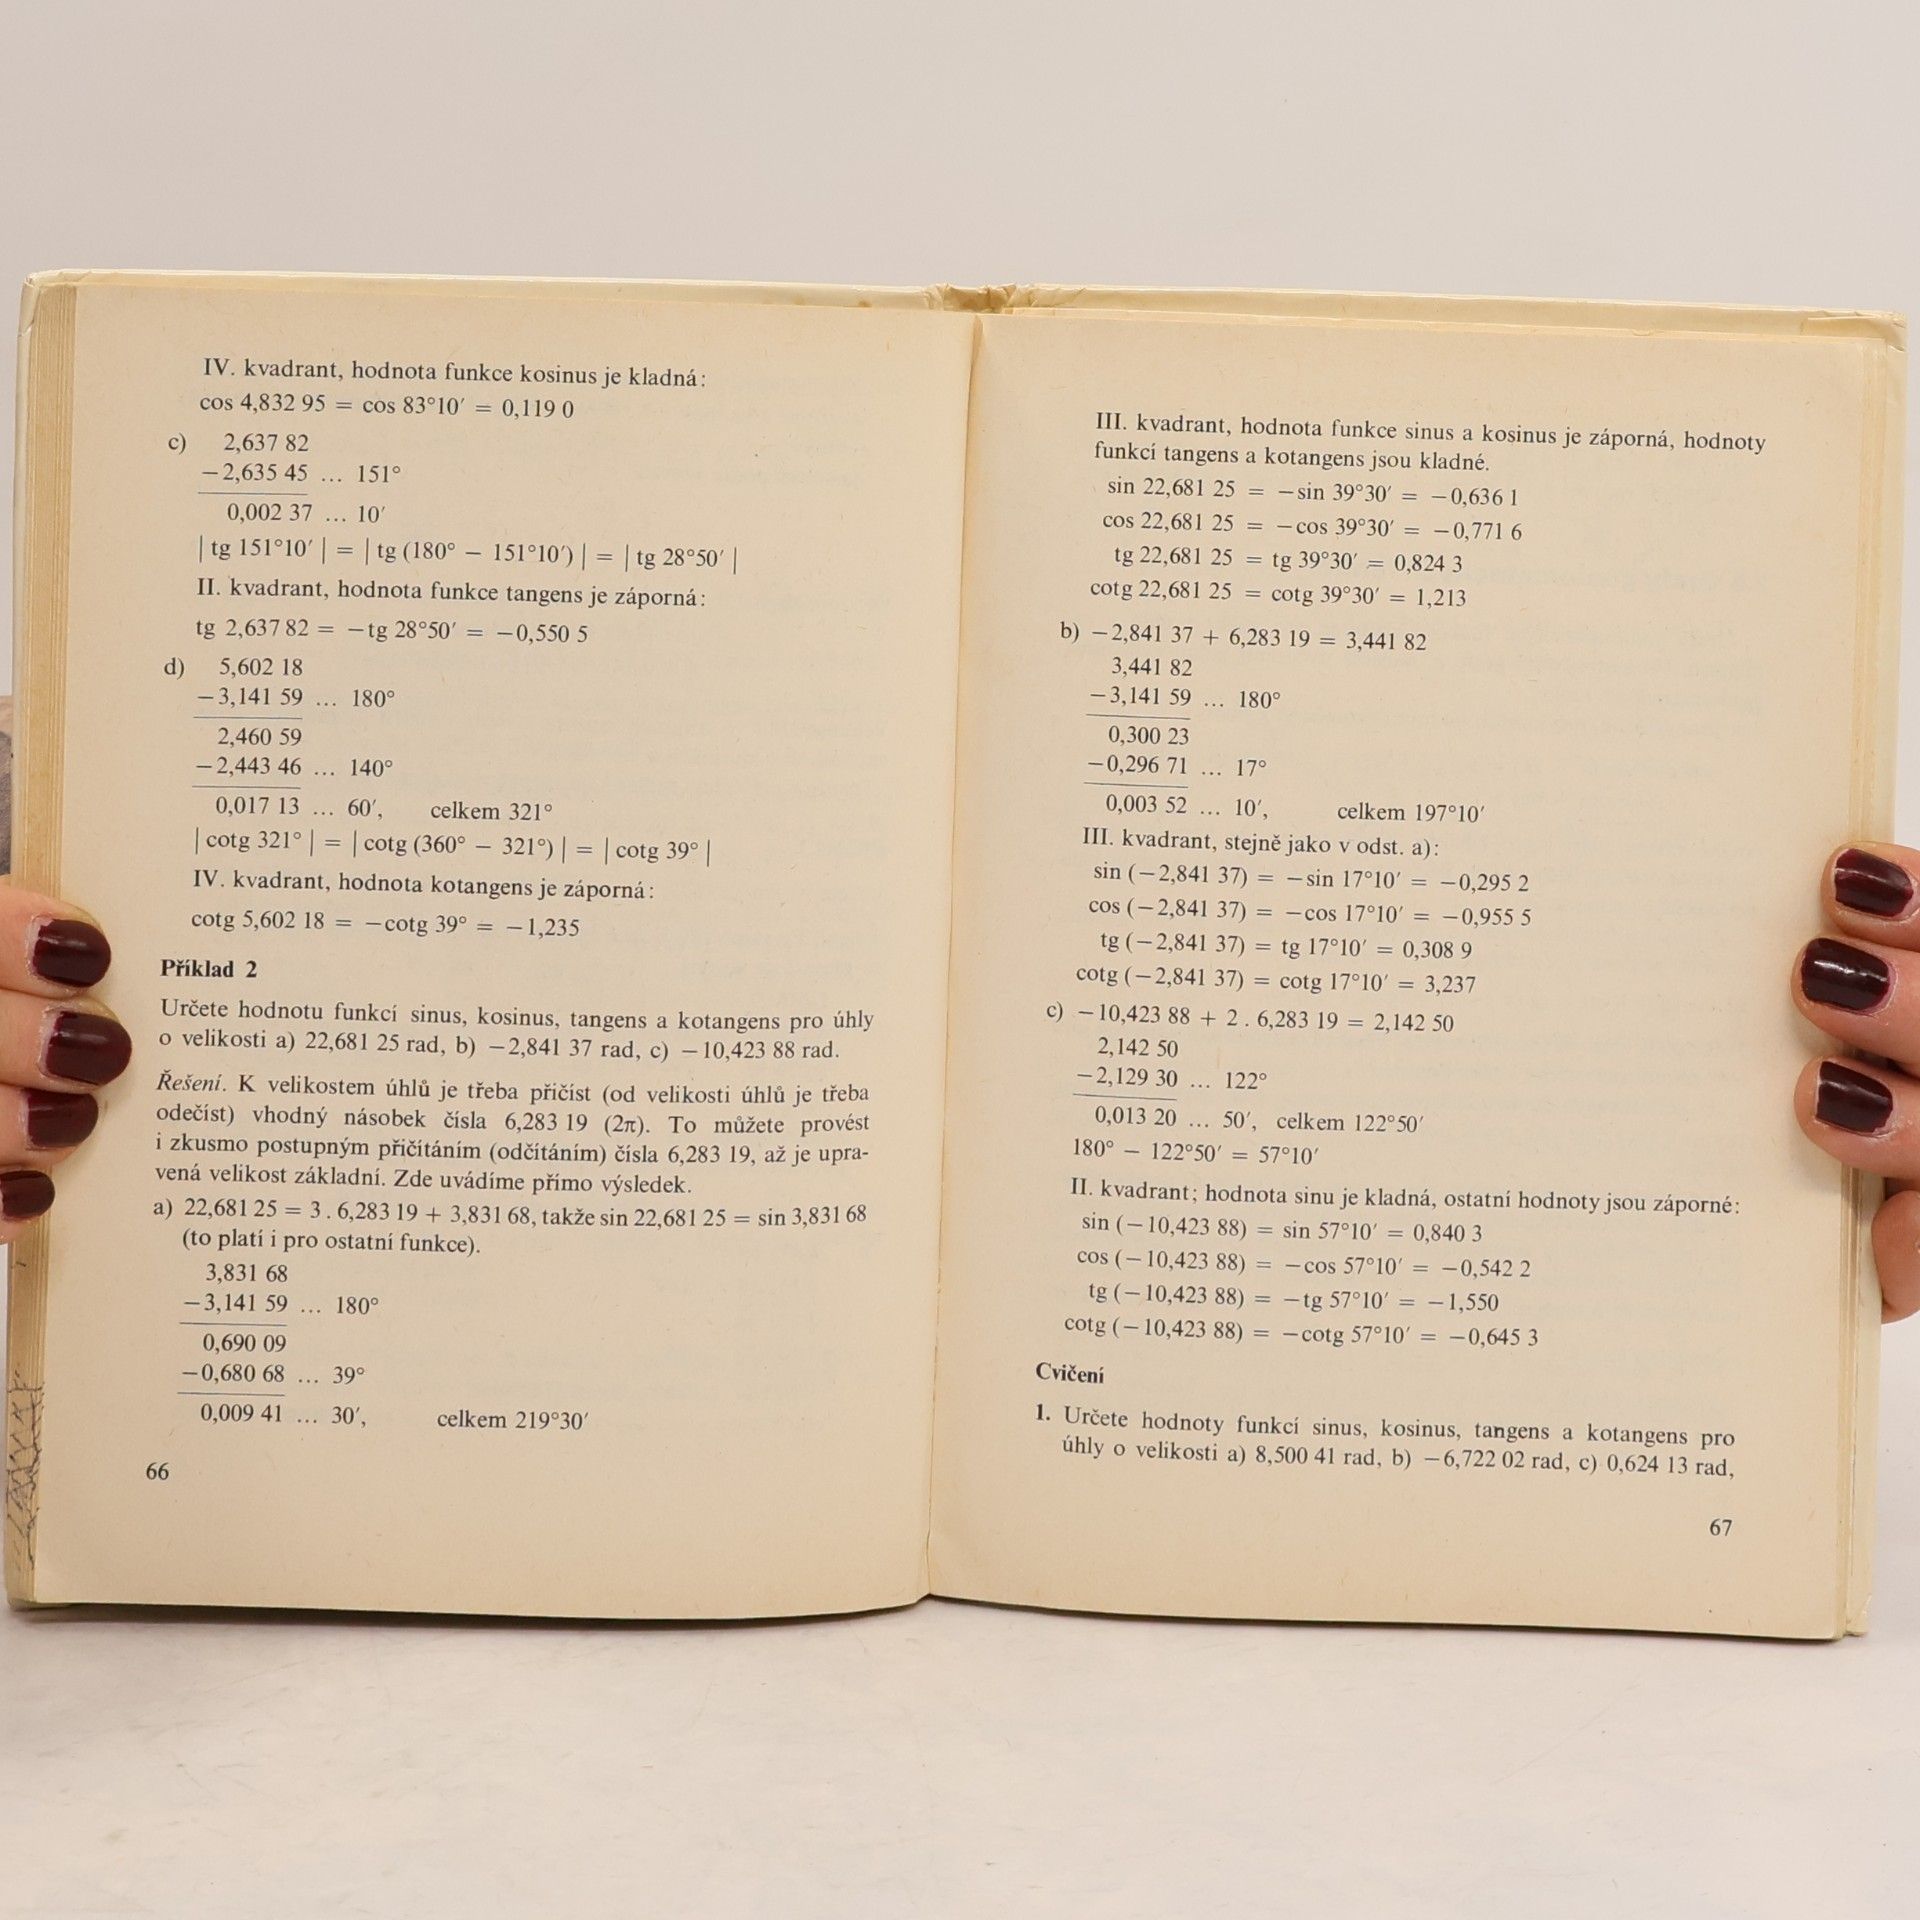 IV. kvadrant, hodnota funkce kosinus je kladná:
cos 4,832 95 = cos 83°10′ = 0,119 0
c) 2,637 82
−2,635 45 ... 151°
0,002 37 ... 10′
| tg 151°10′ | = | tg (180° − 151°10′) | = | tg 28°50′ |
II. kvadrant, hodnota funkce tangens je záporná:
tg 2,637 82 = −tg 28°50′ = −0,550 5
d) 5,602 18
−3,141 59 ... 180°
2,460 59
−2,443 46 ... 140°
0,017 13 ... 60′, celkem 321°
| cotg 321° | = | cotg (360° − 321°) | = | cotg 39° |
IV. kvadrant, hodnota kotangens je záporná:
cotg 5,602 18 = −cotg 39° = −1,235
Příklad 2
Určete hodnotu funkcí sinus, kosinus, tangens a kotangens pro úhly
o velikosti a) 22,681 25 rad, b) −2,841 37 rad, c) −10,423 88 rad.
Řešení. K velikostem úhlů je třeba přičíst (od velikosti úhlů je třeba
odečíst) vhodný násobek čísla 6,283 19 (2π). To můžete provést
i zkusmo postupným přičítáním (odčítáním) čísla 6,283 19, až je upra-
vená velikost základní. Zde uvádíme přímo výsledek.
a) 22,681 25 = 3 . 6,283 19 + 3,831 68, takže sin 22,681 25 = sin 3,831 68
(to platí i pro ostatní funkce).
3,831 68
−3,141 59 ... 180°
0,690 09
−0,680 68 ... 39°
0,009 41 ... 30′, celkem 219°30′
66
III. kvadrant, hodnota funkce sinus a kosinus je záporná, hodnoty
funkcí tangens a kotangens jsou kladné.
sin 22,681 25 = −sin 39°30′ = −0,636 1
cos 22,681 25 = −cos 39°30′ = −0,771 6
tg 22,681 25 = tg 39°30′ = 0,824 3
cotg 22,681 25 = cotg 39°30′ = 1,213
b) −2,841 37 + 6,283 19 = 3,441 82
3,441 82
−3,141 59 ... 180°
0,300 23
−0,296 71 ... 17°
0,003 52 ... 10′, celkem 197°10′
III. kvadrant, stejně jako v odst. a):
sin (−2,841 37) = −sin 17°10′ = −0,295 2
cos (−2,841 37) = −cos 17°10′ = −0,955 5
tg (−2,841 37) = tg 17°10′ = 0,308 9
cotg (−2,841 37) = cotg 17°10′ = 3,237
c) −10,423 88 + 2 . 6,283 19 = 2,142 50
2,142 50
−2,129 30 ... 122°
0,013 20 ... 50′, celkem 122°50′
180° − 122°50′ = 57°10′
II. kvadrant; hodnota sinu je kladná, ostatní hodnoty jsou záporné:
sin (−10,423 88) = sin 57°10′ = 0,840 3
cos (−10,423 88) = −cos 57°10′ = −0,542 2
tg (−10,423 88) = −tg 57°10′ = −1,550
cotg (−10,423 88) = −cotg 57°10′ = −0,645 3
Cvičení
1. Určete hodnoty funkcí sinus, kosinus, tangens a kotangens pro
úhly o velikosti a) 8,500 41 rad, b) −6,722 02 rad, c) 0,624 13 rad,
67